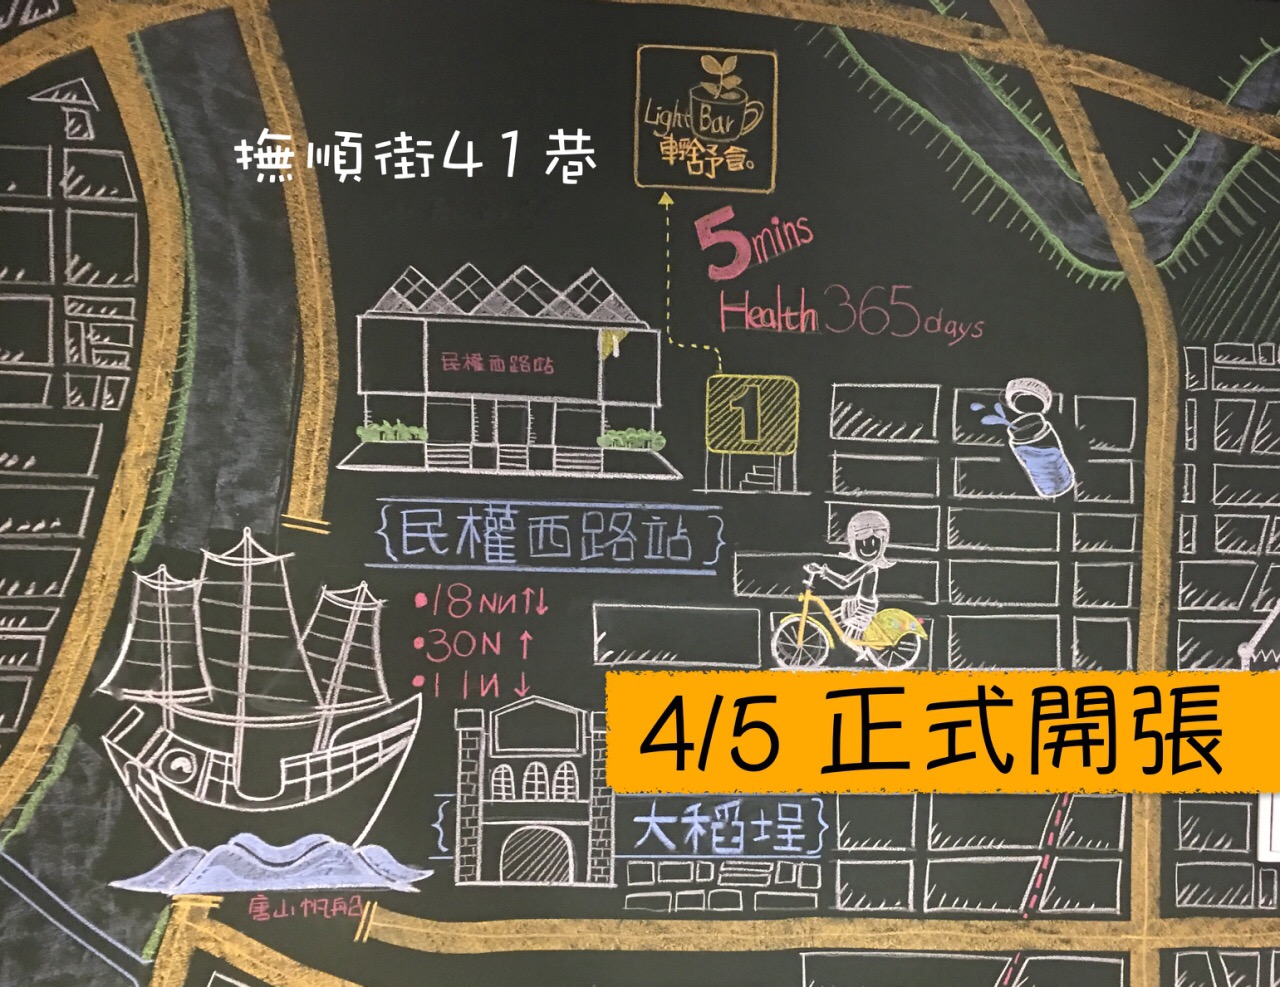 撫順街41巷
Light Bar
輕舒食。
5 mins
Health 365 days
民權西路站
1
{民權西路站}
•18 NN↑↓
•30N ↑
•11N ↓
4/5 正式開張
{大稻埕}
唐山帆船